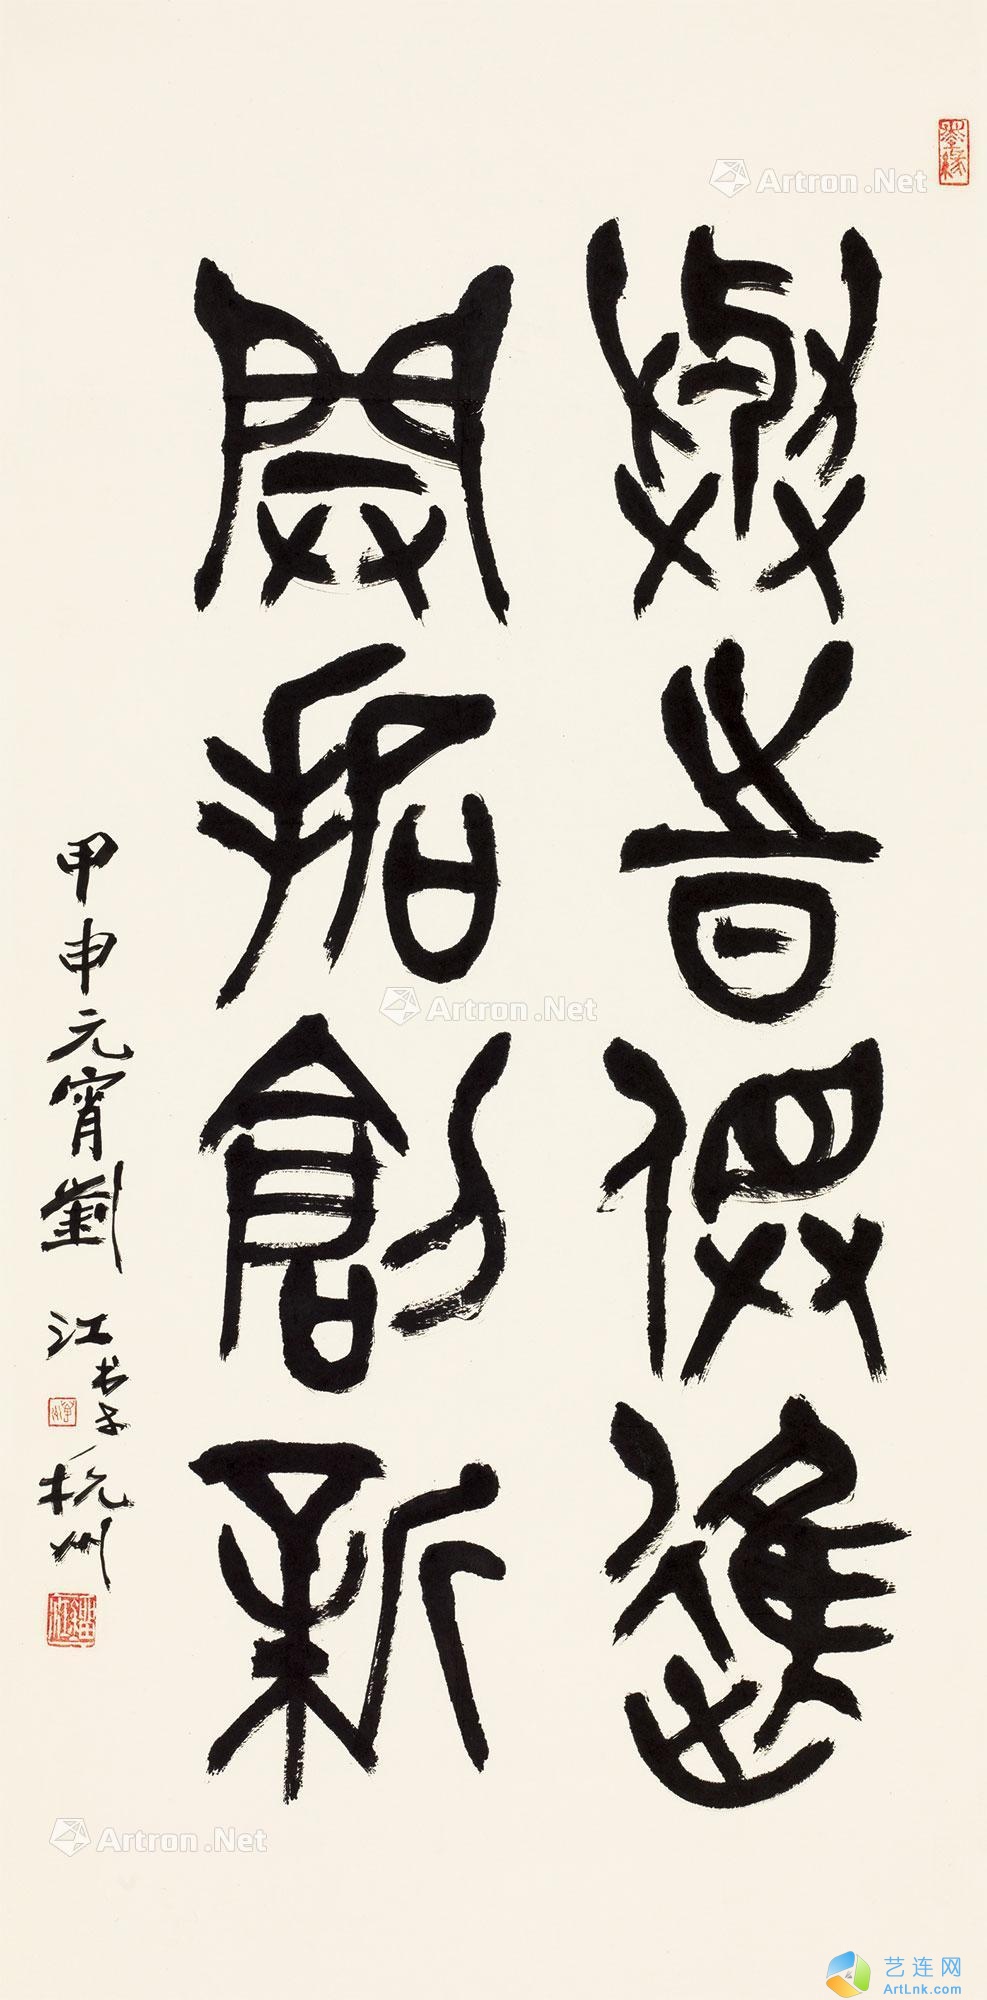 與時俱進
開拓創新
甲申元宵劉江書於杭州
Artron.Net
Artron.Net
Artron.Net
艺连网
ArtLnk.com